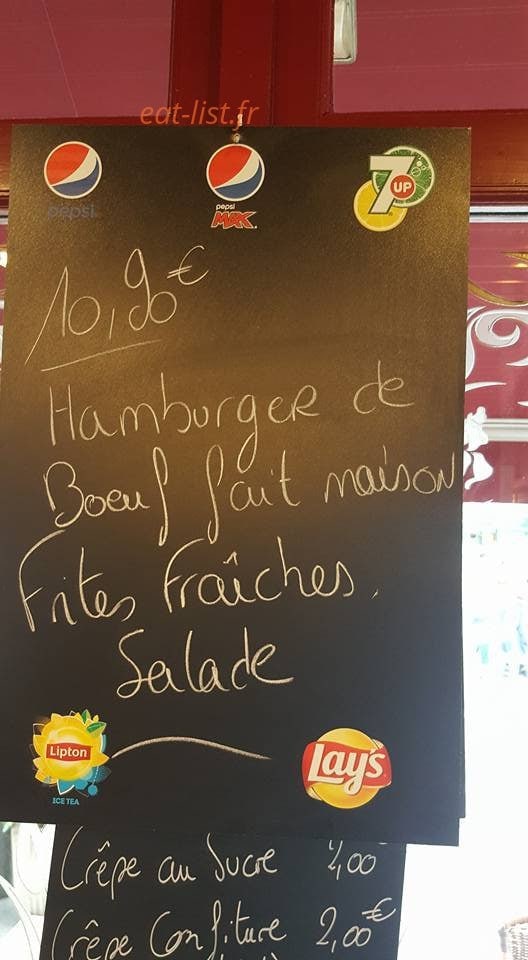 eat-list.fr
pepsi
pepsi
MAX
7UP
10,90€
Hamburger de
Boeuf fait maison
Frites Fraîches,
Salade
Lipton
ICE TEA
Lay's
Crêpe au Sucre
Crêpe Confiture 2,00€